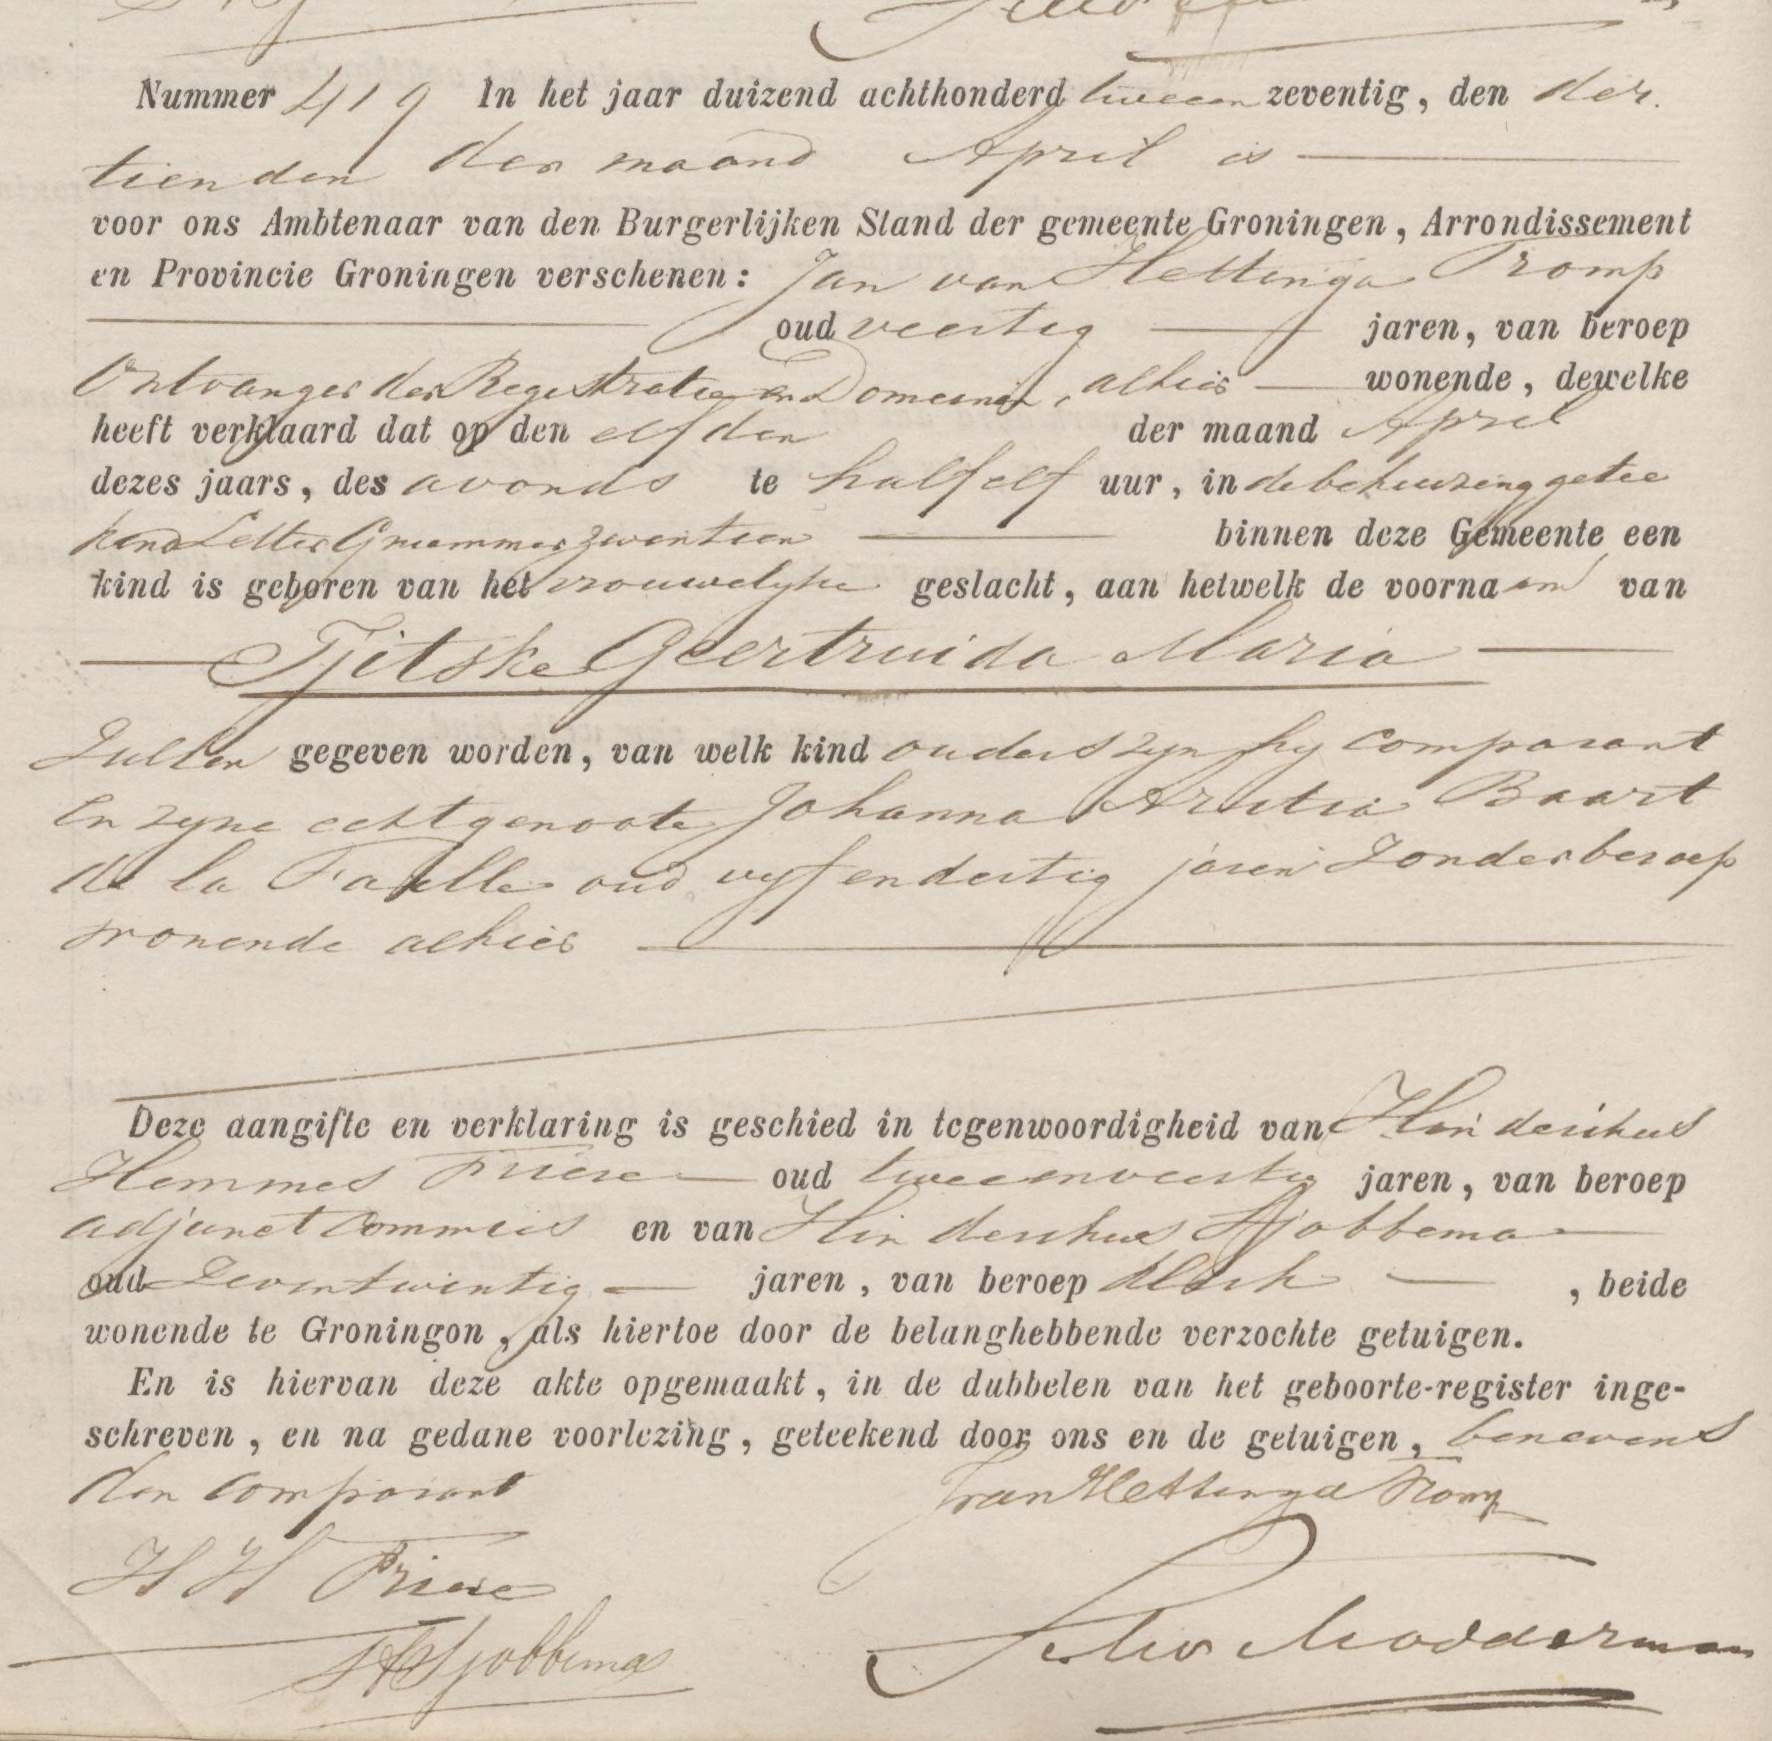 Nummer 419 In het jaar duizend achthonderd tweeen zeventig, den der.
tienden der maand April is
voor ons Ambtenaar van den Burgerlijken Stand der gemeente Groningen, Arrondissement
en Provincie Groningen verschenen: Jan van Hettinga Tromp
oud veertig jaren, van beroep
Ontvanger der Registratie en Domeinen, alhier wonende, dewelke
heeft verklaard dat op den elfden der maand April
dezes jaars, des avonds te half elf uur, in de behuizing getee
kend Letter G nummer zeventien binnen deze Gemeente een
kind is geboren van het vrouwelyke geslacht, aan hetwelk de voornamen van
Tjitske Geertruida Maria
Zullen gegeven worden, van welk kind ouders zyn hy comparant
en zyne echtgenoote Johanna Aretia Baart
de la Faille oud vyf en dertig jaren Zonder beroep
wonende alhier
Deze aangifte en verklaring is geschied in tegenwoordigheid van Hinderikus
Hemmes Friese oud tweeenveertig jaren, van beroep
adjunct commies en van Hinderikus Sjobbema
oud Zeventwintig jaren, van beroep klerk, beide
wonende te Groningon, als hiertoe door de belanghebbende verzochte getuigen.
En is hiervan deze akte opgemaakt, in de dubbelen van het geboorte-register inge-
schreven, en na gedane voorlezing, geteekend door ons en de getuigen, benevens
den comparant JvanHettinga Tromp
H H Friese
H Sjobbema Modderman